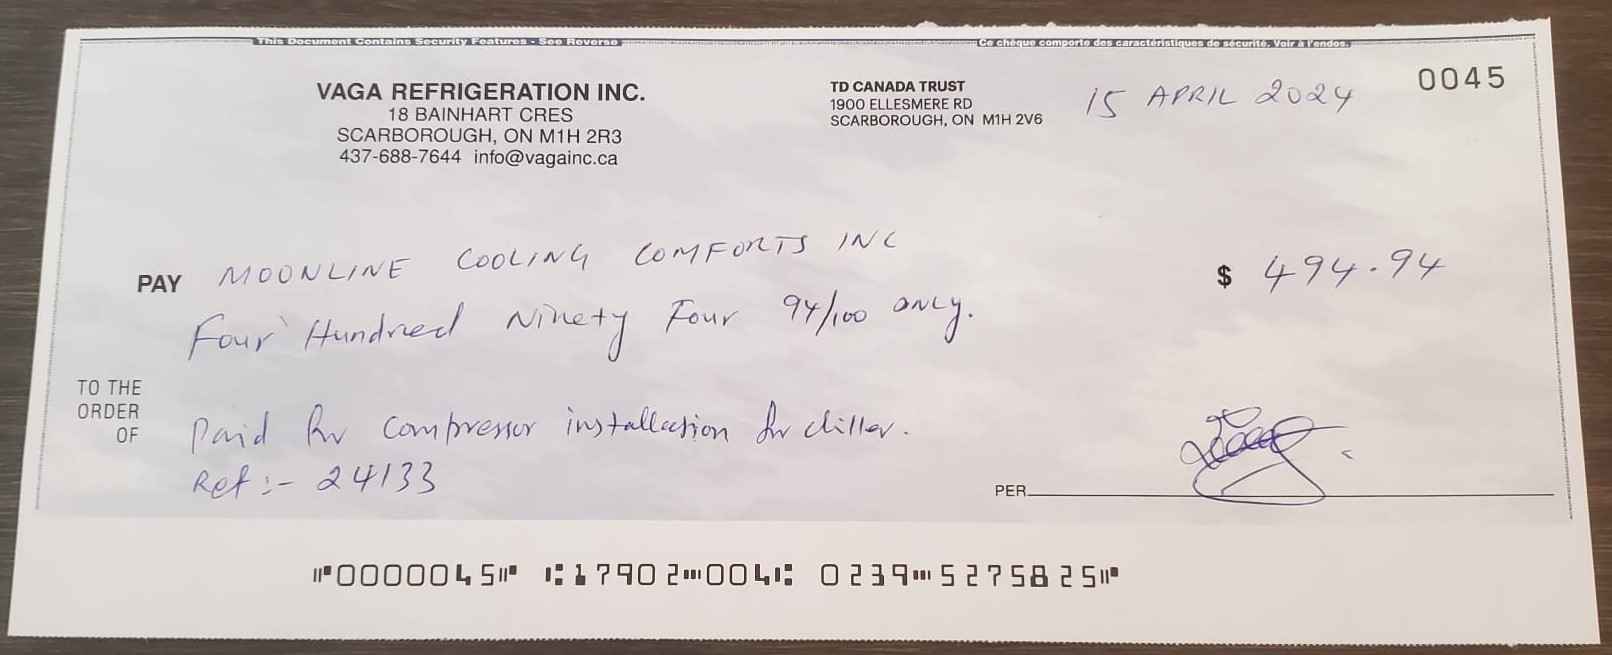 This Document Contains Security Features - See Reverse
Ce chèque comporte des caractéristiques de sécurité. Voir à l'endos.
VAGA REFRIGERATION INC.
18 BAINHART CRES
SCARBOROUGH, ON M1H 2R3
437-688-7644 info@vagainc.ca
TD CANADA TRUST
1900 ELLESMERE RD
SCARBOROUGH, ON M1H 2V6
15 APRIL 2024
0045
PAY MOONLINE COOLING COMFORTS INC
$ 494.94
Four Hundred Ninety Four 94/100 ONLY.
TO THE
ORDER
OF
Paid for compressor installation for chiller.
Ref :- 24133
PER
⑈0000045⑈ ⑆17902⑉004⑆ 0239⑉5275825⑈